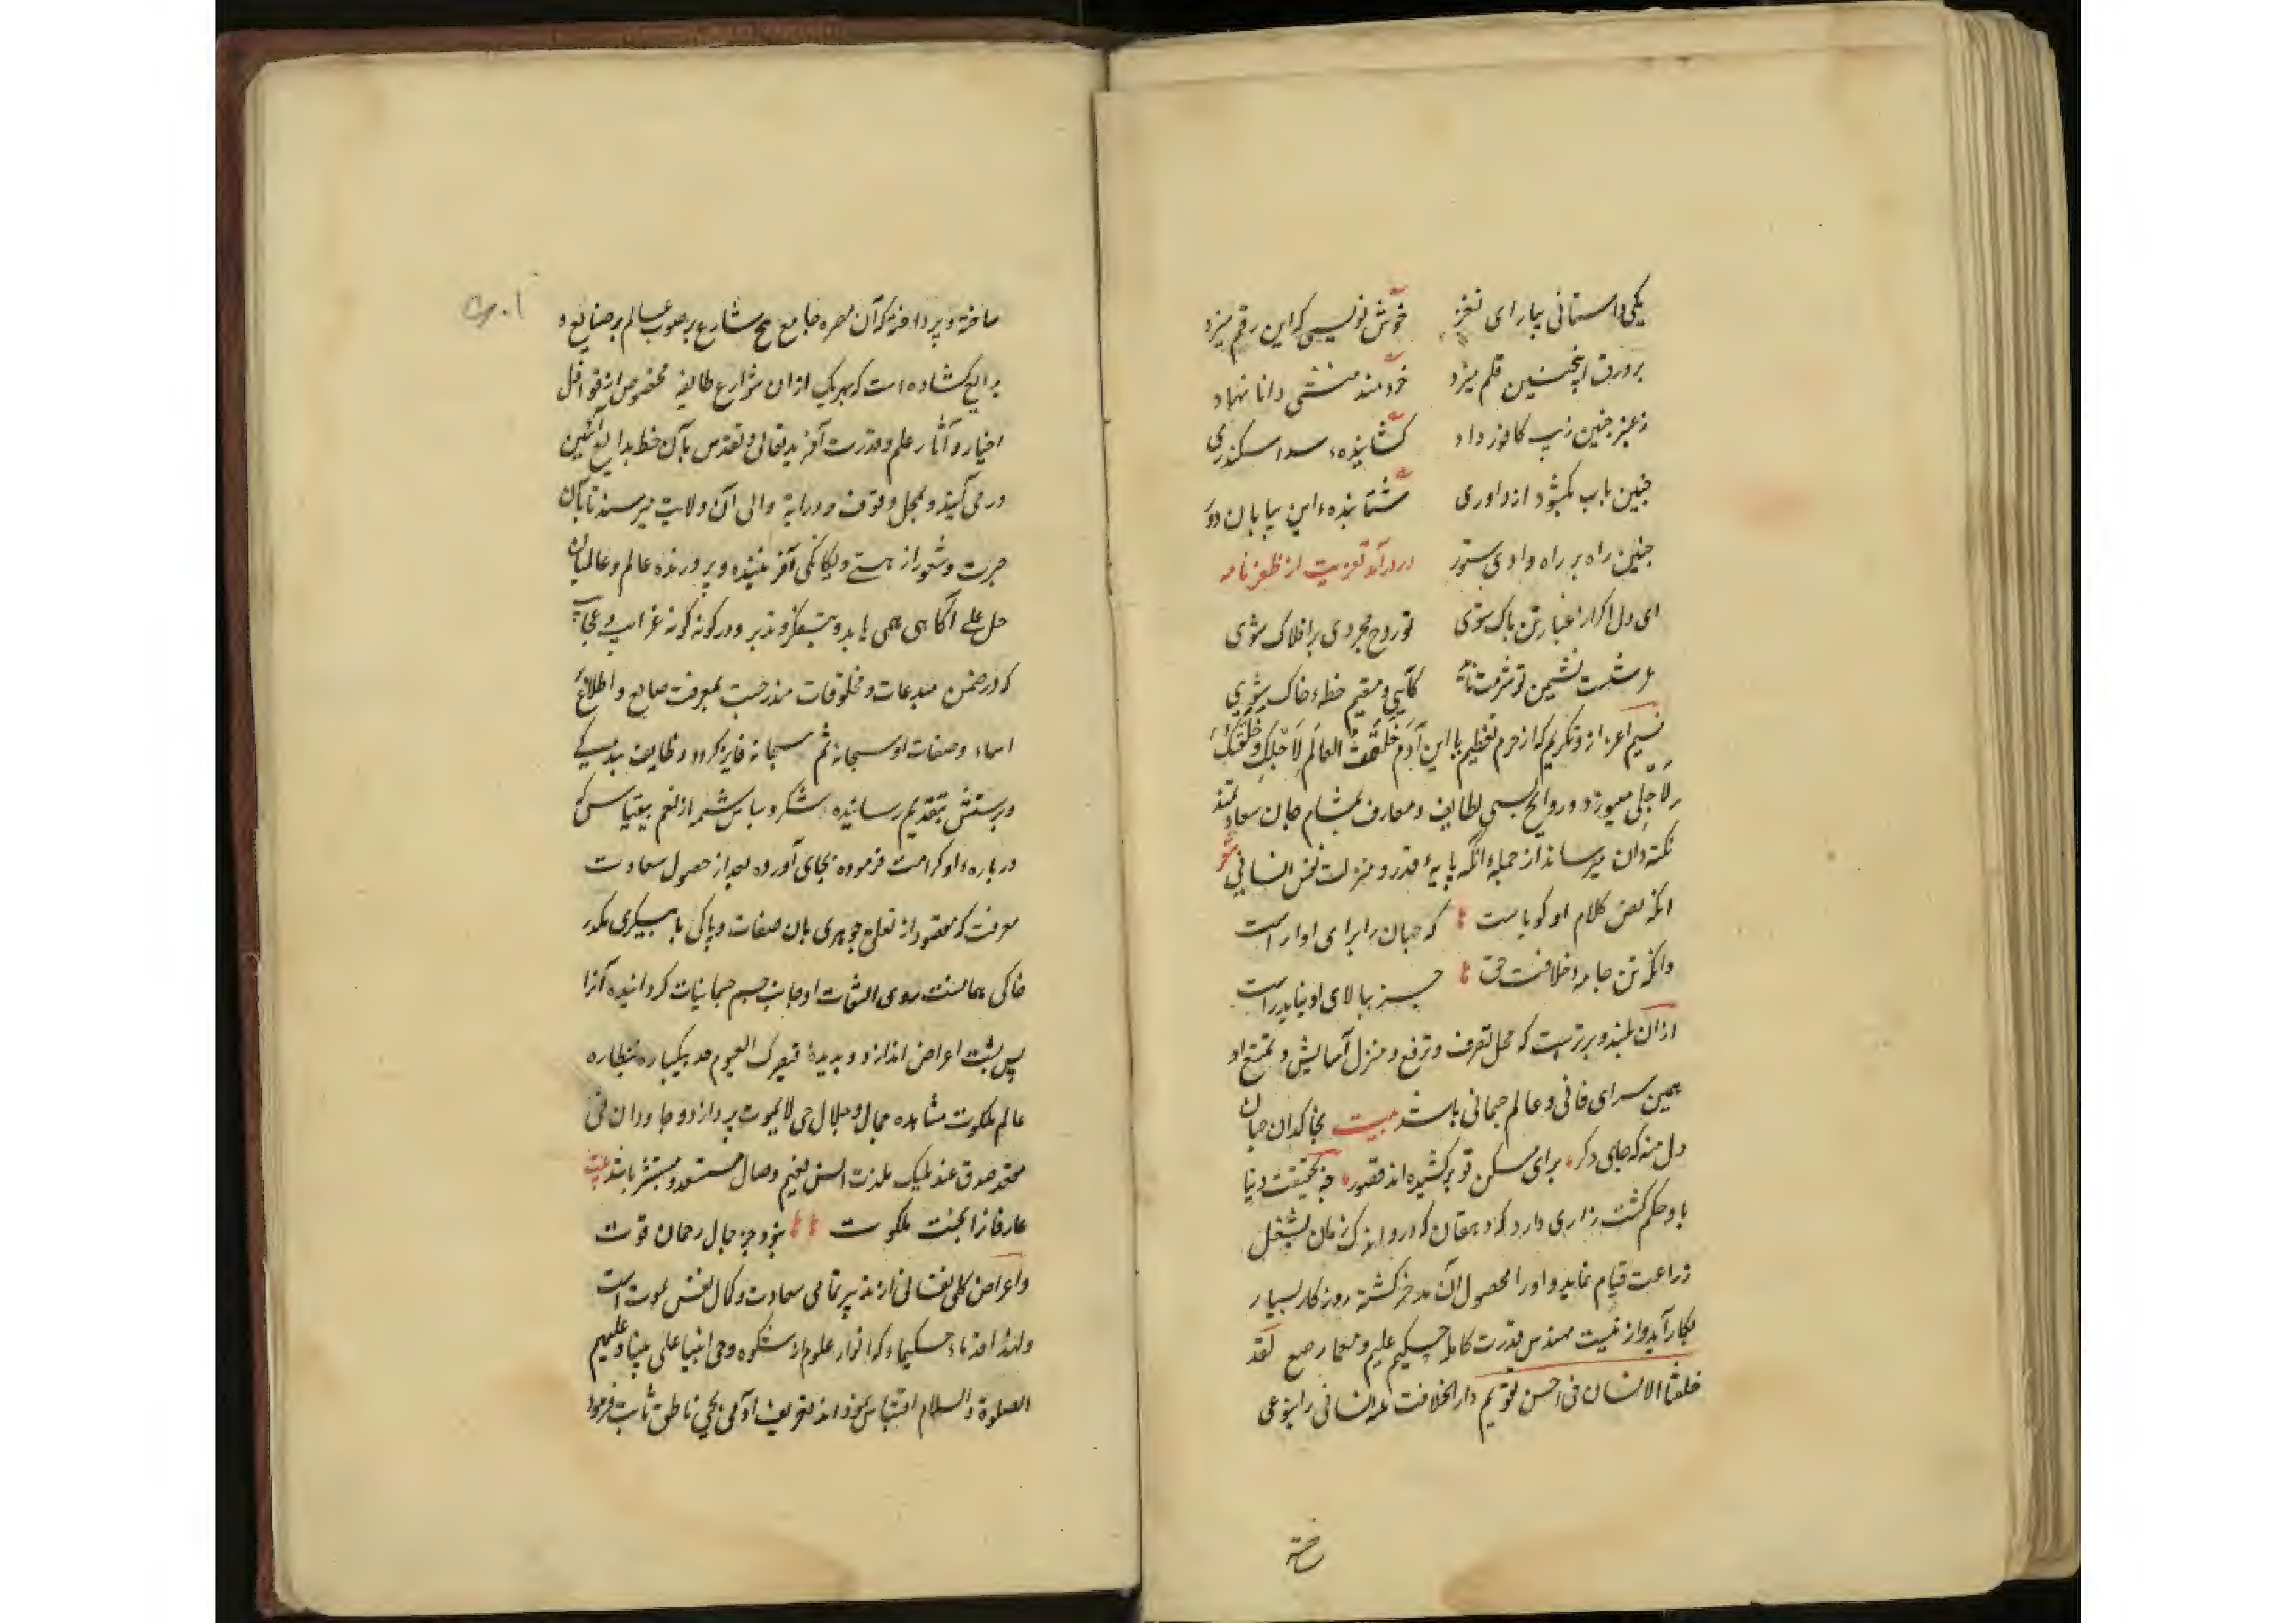 یکی داستانی بیارای نغز خوش نویسی که این رقم میزد
بر ورق اینچنین قلم میزد خردمند منشی دانا نهاد
ز عنبر چنین زیب کافور داد کشاینده سد اسکندری
چنین باب بکشود از داوری شتابنده این بیابان دور
چنین راه بر راه وادی ستور در درآمد تعزیت از ظفرنامه
ای دل اکر از غبار تن پاک شوی تو روح مجردی بر افلاک شوی
عرشست نشیمن تو شرمت ناید کآیی و مقیم خطه خاک شوی
نسیم اعزاز و تکریم که از حرم تعظیم یا ابن آدم خلقت العالم لاجلک و خلقتک
لاجلی میوزد و روایح لطایف و معارف بمشام جان سعادتمند
نکته دان میرساند از جمله آنکه پایه قدر و منزلت نفس انسانی شعر
انکه نص کلام او کویاست که جهان را برای او اراست
وانکه تن جامه خلافت حق جز ببالای او نیاید راست
از ان بلند و برترست که محل تصرف و ترفع و منزل آسایش و تمتع او
همین سرای فانی و عالم جسمانی باشد بیت بخاکدان جهان
دل منه که جای دکر برای مسکن تو برکشیده اند قصور چه بحقیقت دنیا
باو حکم کشت زاری دارد که دهقان که در و اندک زمان بشغل
زراعت قیام نماید و او را محصول آن مدخر کشته روزکار بسیار
بکار آید و از نیست مهندس قدرت کامله حکیم علیم و معمار صنع لقد
خلقنا الانسان فی احسن تقویم دار الخلافت انسانی را بنوعی
خته
ساخته و پرداخته که آن مصر جامع شارع بر صوب عالم بر صنایع و
بدایع کشاده است که بهر یک از ان شوارع طایفه مخصوص از قوافل
اخبار و آثار علم و قدرت آفریدتعالی و تقدس بآن خطه بدایع آئین
در می آیند و بمحل وقوف و درایة والی آن ولایت میرسند تا بآن
خبرت و شعور از هستی و یکانکی آفریننده و پرورنده عالم و عالمیان
جل علی آکاهی همی یابد و بتفکر و تدبر در کونه کونه غرایب و عجایب
که در ضمن مبدعات و مخلوقات مندرجست بمعرفت صانع و اطلاع
اسماء و صفات او سبحانه ثم سبحانه فایز کردد و وظایف بندکی
و پرستش بتقدیم رسانیده شکر و سپاس شمه از نعم بیقیاس که
درباره او کرامت فرموده بجای آورده بعد از حصول سعادت
معرفت که مقصود از تعلق جوهری بان صفات و پاکی با پیکری مکدر
خاکی همانست روی التفات او جانب جسم جسمانیات کردانیده آنرا
پس پشت اعراض اندازد و بدیده فبصرک الیوم حدید یکباره بنظاره
عالم ملکوت مشاهده جمال و جلال حی لا یموت پردازد و جاودان فی
مقعد صدق عند ملیک بلذت انس نعیم وصال مستعد و مستبشر باشد بیت
عارفانرا بجنت ملکوت نبود جز جمال رحمان قوت
و اعراض کلی نفسانی از تدبیر تمامی سعادت و کمال نفس بموت است
و لهذا قدماء حکما که انوار علوم از مشکوه وحی انبیا علی نبینا و علیهم
الصلوة و السلام اقتباس نموده اند تعریف آدمی بحی ناطق ثابت فرموده